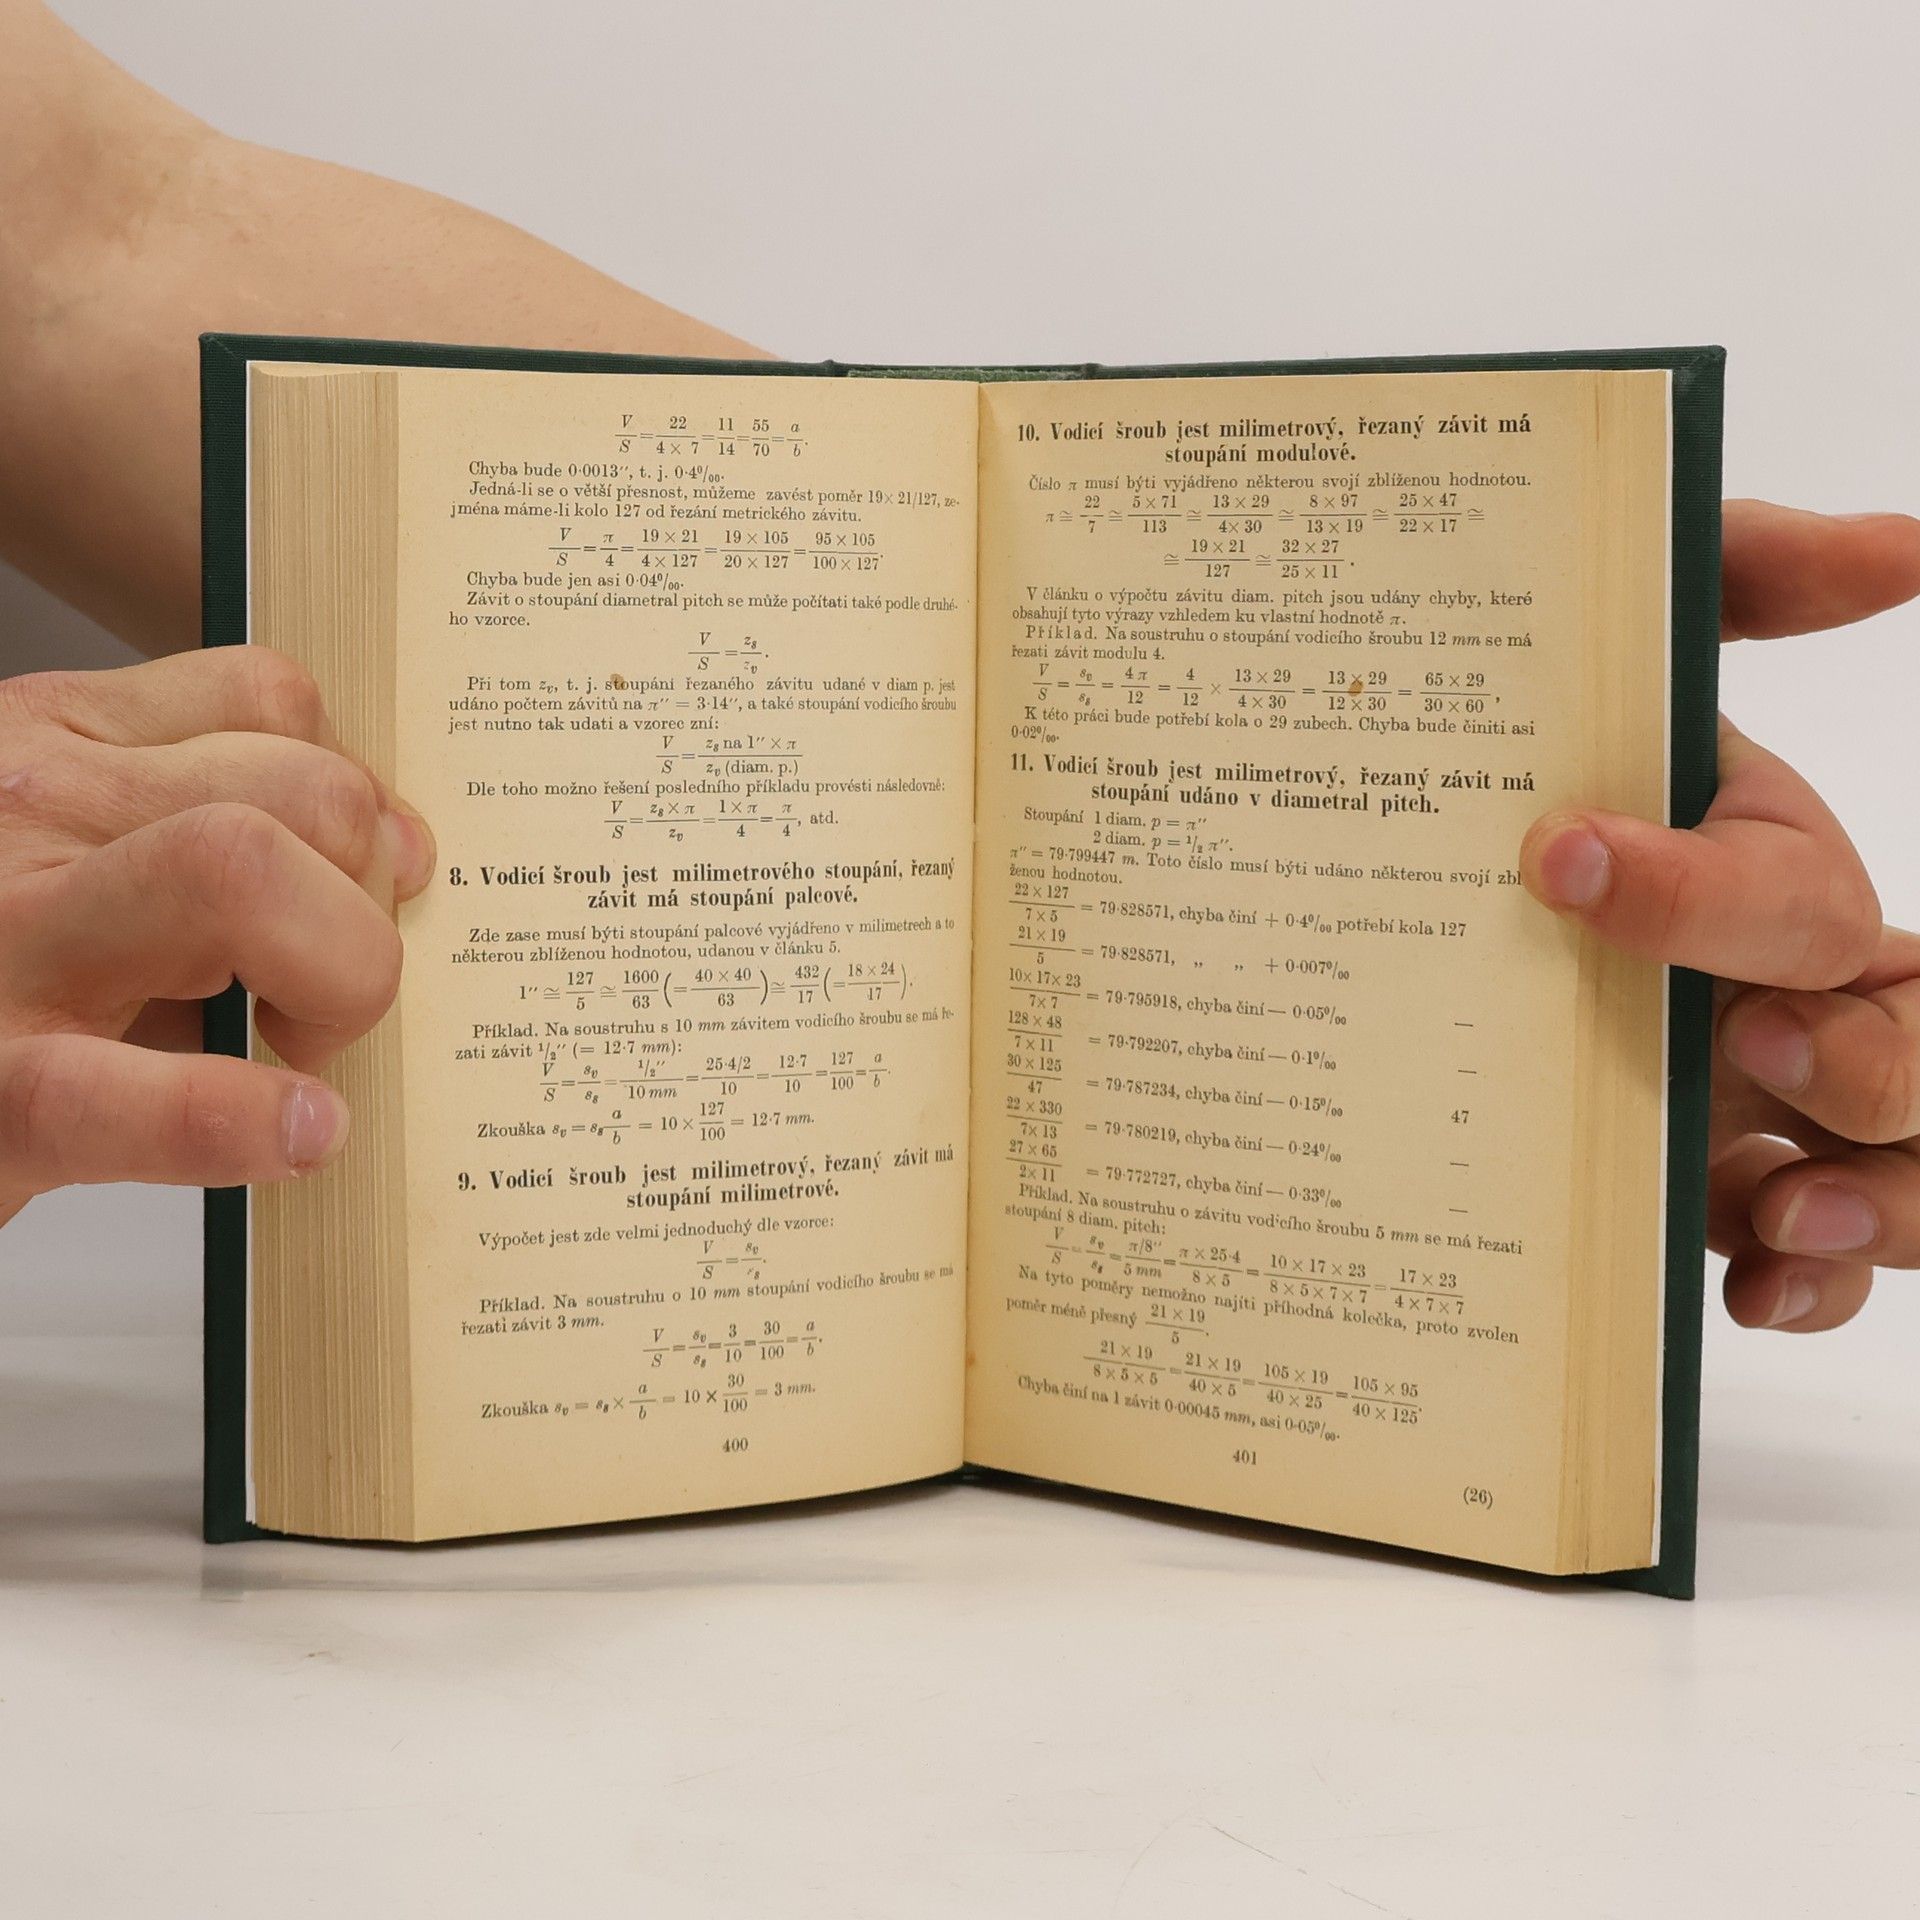 V/S = 22/(4 × 7) = 11/14 = 55/70 = a/b.
Chyba bude 0·0013″, t. j. 0·4⁰/₀₀.
Jedná-li se o větší přesnost, můžeme zavést poměr 19 × 21/127, ze-
jména máme-li kolo 127 od řezání metrického závitu.
V/S = π/4 = (19 × 21)/(4 × 127) = (19 × 105)/(20 × 127) = (95 × 105)/(100 × 127).
Chyba bude jen asi 0·04⁰/₀₀.
Závit o stoupání diametral pitch se může počítati také podle druhé-
ho vzorce.
V/S = z_s/z_v.
Při tom z_v, t. j. stoupání řezaného závitu udané v diam p. jest
udáno počtem závitů na π″ = 3·14″, a také stoupání vodicího šroubu
jest nutno tak udati a vzorec zní:
V/S = (z_s na 1″ × π)/(z_v (diam. p.))
Dle toho možno řešení posledního příkladu provésti následovně:
V/S = (z_s × π)/z_v = (1 × π)/4 = π/4, atd.
8. Vodicí šroub jest milimetrového stoupání, řezaný
závit má stoupání palcové.
Zde zase musí býti stoupání palcové vyjádřeno v milimetrech a to
některou zblíženou hodnotou, udanou v článku 5.
1″ ≅ 127/5 ≅ 1600/63 (= (40 × 40)/63) ≅ 432/17 (= (18 × 24)/17).
Příklad. Na soustruhu s 10 mm závitem vodicího šroubu se má ře-
zati závit ¹/₂″ (= 12·7 mm):
V/S = s_v/s_s = ¹/₂″/10 mm = 25·4/2/10 = 12·7/10 = 127/100 = a/b.
Zkouška s_v = s_s a/b = 10 × 127/100 = 12·7 mm.
9. Vodicí šroub jest milimetrový, řezaný závit má
stoupání milimetrové.
Výpočet jest zde velmi jednoduchý dle vzorce:
V/S = s_v/s_s.
Příklad. Na soustruhu o 10 mm stoupání vodicího šroubu se má
řezati závit 3 mm.
V/S = s_v/s_s = 3/10 = 30/100 = a/b.
Zkouška s_v = s_s × a/b = 10 × 30/100 = 3 mm.
400
10. Vodicí šroub jest milimetrový, řezaný závit má
stoupání modulové.
Číslo π musí býti vyjádřeno některou svojí zblíženou hodnotou.
π ≅ 22/7 ≅ (5 × 71)/113 ≅ (13 × 29)/(4 × 30) ≅ (8 × 97)/(13 × 19) ≅ (25 × 47)/(22 × 17) ≅
≅ (19 × 21)/127 ≅ (32 × 27)/(25 × 11).
V článku o výpočtu závitu diam. pitch jsou udány chyby, které
obsahují tyto výrazy vzhledem ku vlastní hodnotě π.
Příklad. Na soustruhu o stoupání vodicího šroubu 12 mm se má
řezati závit modulu 4.
V/S = s_v/s_s = 4π/12 = 4/12 × (13 × 29)/(4 × 30) = (13 × 29)/(12 × 30) = (65 × 29)/(30 × 60),
K této práci bude potřebí kola o 29 zubech. Chyba bude činiti asi
0·02⁰/₀₀.
11. Vodicí šroub jest milimetrový, řezaný závit má
stoupání udáno v diametral pitch.
Stoupání 1 diam. p = π″
2 diam. p = ¹/₂ π″.
π″ = 79·799447 m. Toto číslo musí býti udáno některou svojí zbl
ženou hodnotou.
(22 × 127)/(7 × 5) = 79·828571, chyba činí + 0·4⁰/₀₀ potřebí kola 127
(21 × 19)/5 = 79·828571, „ „ + 0·007⁰/₀₀
(10 × 17 × 23)/(7 × 7) = 79·795918, chyba činí — 0·05⁰/₀₀ —
(128 × 48)/(7 × 11) = 79·792207, chyba činí — 0·1⁰/₀₀ —
(30 × 125)/47 = 79·787234, chyba činí — 0·15⁰/₀₀ 47
(22 × 330)/(7 × 13) = 79·780219, chyba činí — 0·24⁰/₀₀ —
(27 × 65)/(2 × 11) = 79·772727, chyba činí — 0·33⁰/₀₀ —
Příklad. Na soustruhu o závitu vodicího šroubu 5 mm se má řezati
stoupání 8 diam. pitch:
V/S = s_v/s_s = π/8″/5 mm = (π × 25·4)/(8 × 5) = (10 × 17 × 23)/(8 × 5 × 7 × 7) = (17 × 23)/(4 × 7 × 7)
Na tyto poměry nemožno najíti příhodná kolečka, proto zvolen
poměr méně přesný (21 × 19)/5.
(21 × 19)/(8 × 5 × 5) = (21 × 19)/(40 × 5) = (105 × 19)/(40 × 25) = (105 × 95)/(40 × 125).
Chyba činí na 1 závit 0·00045 mm, asi 0·05⁰/₀₀.
401
(26)